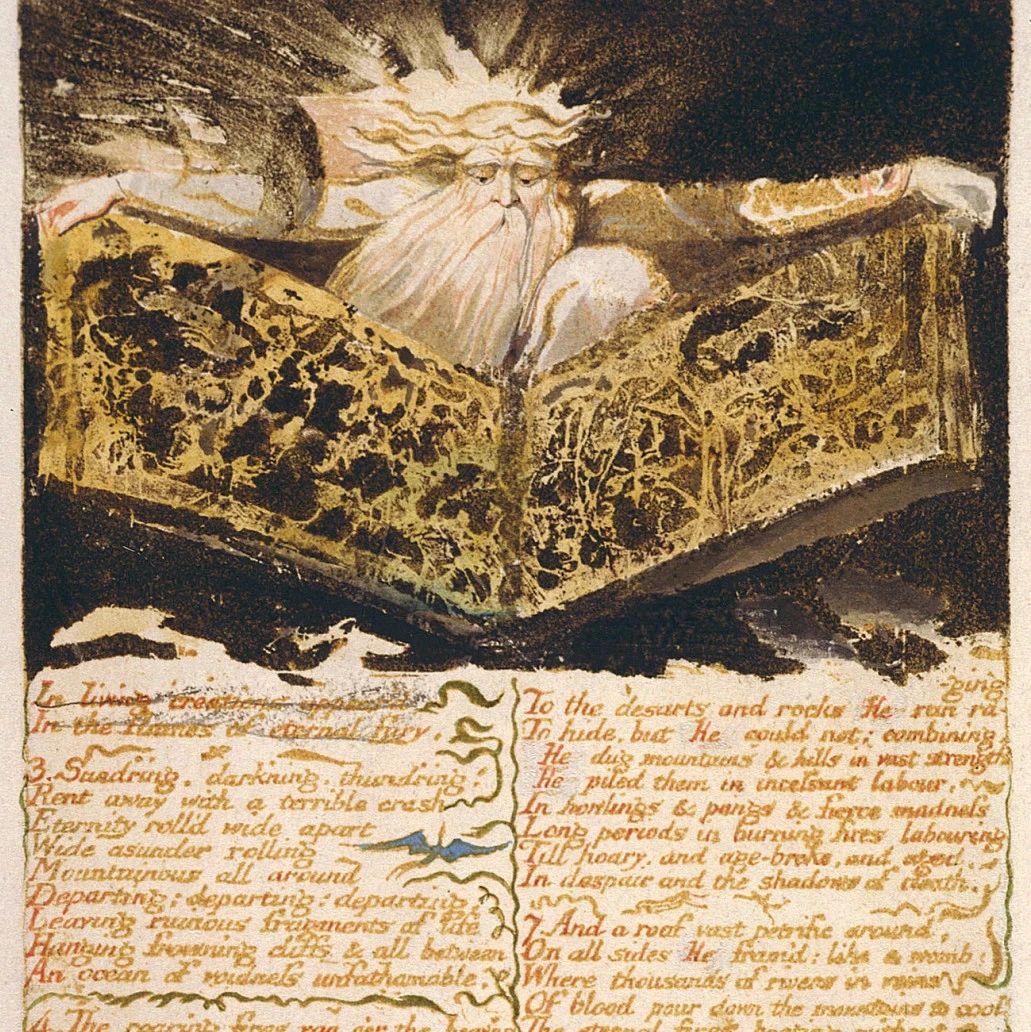 In living creations appear'd
In the flames of eternal fury.
3. Sundring, darkning, thundring;
Rent away with a terrible crash
Eternity roll'd wide apart
Wide asunder rolling
Mountainous all around
Departing; departing; departing:
Leaving ruinous fragments of life
Hanging frowning cliffs & all between
An ocean of voidness unfathomable.
4. The roaring fires ran o'er the heavens
-ging
To the desarts and rocks He ran ra-
To hide, but He could not; combining
He dug mountains & hills in vast strength
He piled them in incessant labour,
In howlings & pangs & fierce madness
Long periods in burning fires labouring
Till hoary, and age-broke, and aged,
In despair and the shadows of death.
7. And a roof vast petrific around,
On all sides He fram'd: like a womb;
Where thousands of rivers in veins
Of blood pour down the mountains to cool
The eternal fires